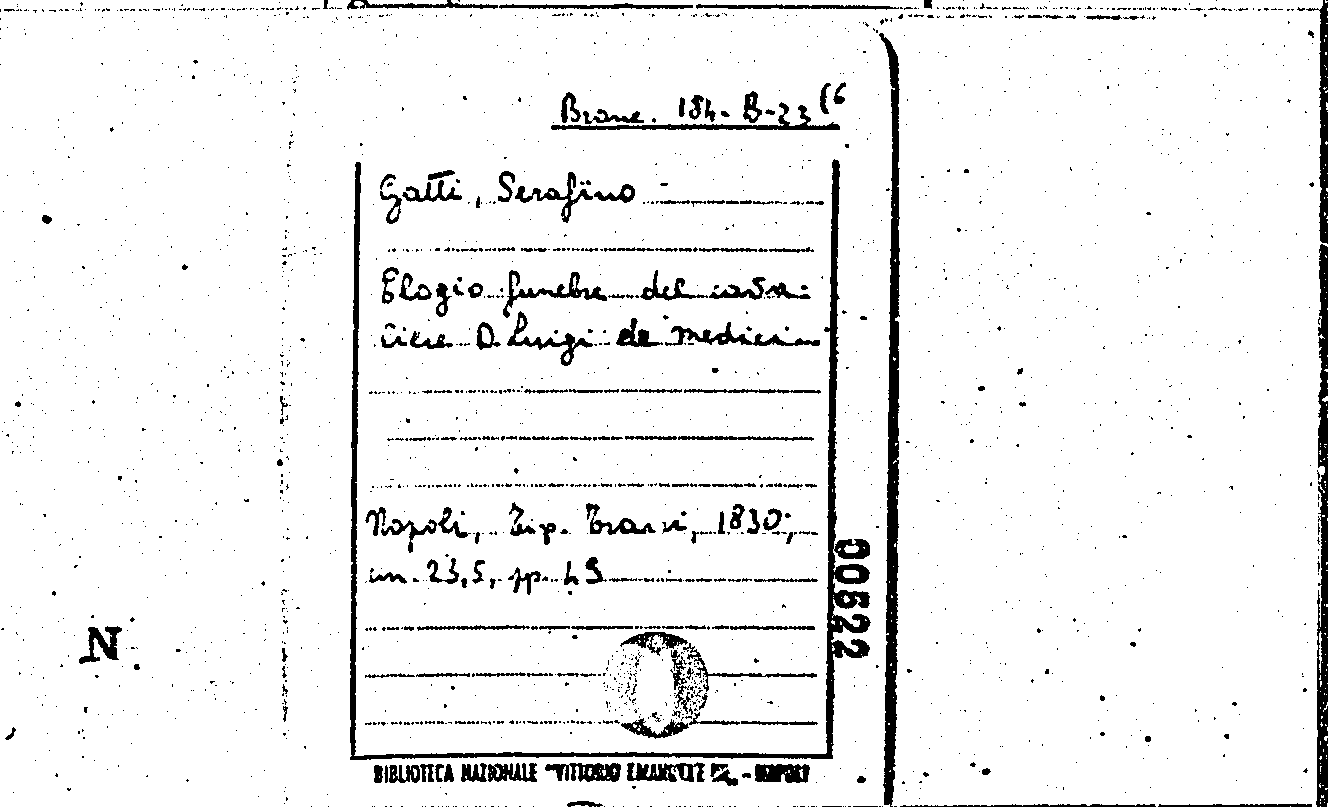 Branc. 184-B-23(6
Gatti, Serafino
Elogio funebre del cava=
liere D. Luigi de Medici
Napoli, Tip. Trani, 1830;
cm. 23,5, pp. 49
00522
N
BIBLIOTECA NAZIONALE "VITTORIO EMANUELE - NAPOLI